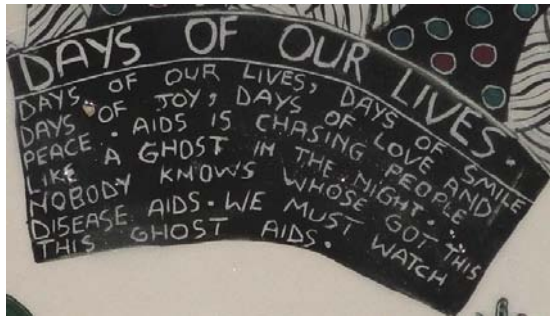 DAYS OF OUR LIVES.
DAYS OF OUR LIVES, DAYS OF
DAYS OF JOY, DAYS OF LOVE SMILE
PEACE. AIDS IS CHASING PEOPLE AND
LIKE A GHOST IN THE NIGHT.
NOBODY KNOWS WHOSE GOT THIS
DISEASE AIDS. WE MUST WATCH
THIS GHOST AIDS.